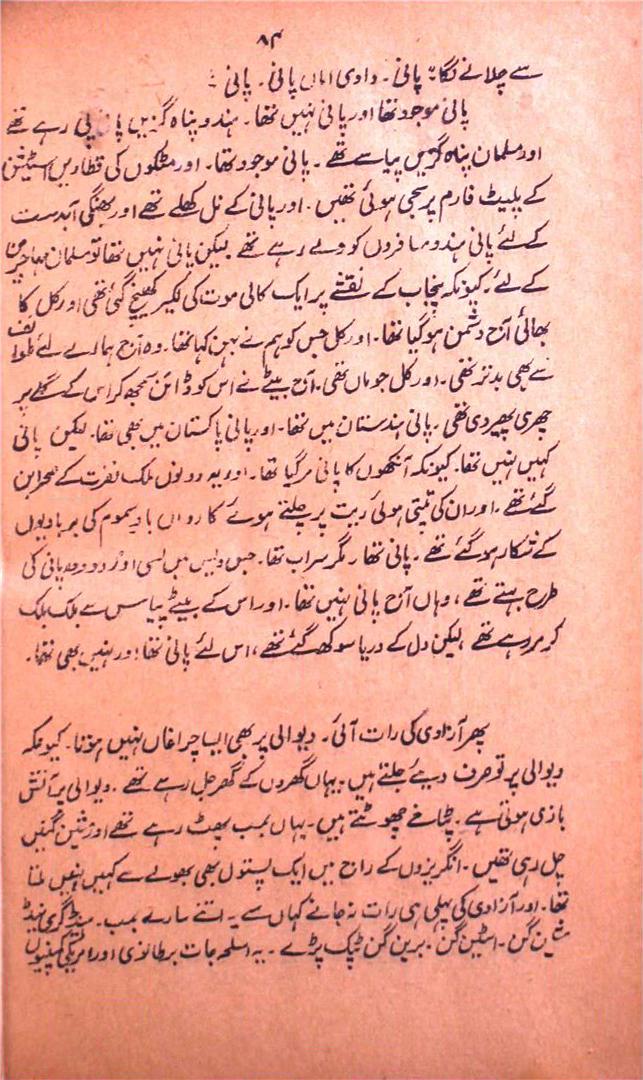 ۸۴
سے چلانے لگا: پانی۔ دادی اماں پانی۔ پانی :
پانی موجود تھا اور پانی نہیں تھا۔ ہندو پناہ گزیں پانی پی رہے تھے
اور مسلمان پناہ گزیں پیاسے تھے۔ پانی موجود تھا۔ اور مٹکوں کی قطاریں اسٹیشن
کے پلیٹ فارم پر سجی ہوئی تھیں۔ اور پانی کے نل کھلے تھے اور بھنگی آبدست
کے لئے پانی ہندو مسافروں کو دے رہے تھے لیکن پانی نہیں تھا تو مسلمان مہاجرین
کے لئے۔ کیونکہ پنجاب کے نقشے پر ایک کالی موت کی لکیر کھینچ گئی تھی اور کل کا
بھائی آج دشمن ہو گیا تھا۔ اور کل جس کو ہم نے بہن کہا تھا۔ وہ آج ہمارے لئے طوائف
سے بھی بدتر تھی۔ اور کل جو ماں تھی۔ آج بیٹے نے اس کو ڈائن سمجھ کر اس کے گلے پر
چھری پھیر دی تھی۔ پانی ہندستان میں تھا۔ اور پانی پاکستان میں بھی تھا۔ لیکن پانی
کہیں نہیں تھا۔ کیونکہ آنکھوں کا پانی مر گیا تھا۔ اور یہ دونوں ملک نفرت کے صحرا بن
گئے تھے۔ اور ان کی تپتی ہوئی ریت پر چلتے ہوئے کارواں باد سموم کی بربادیوں
کے شکار ہو گئے تھے۔ پانی تھا۔ مگر سراب تھا۔ جس دیس میں لسی اور دودھ پانی کی
طرح بہتے تھے، وہاں آج پانی نہیں تھا۔ اور اس کے بیٹے پیاس سے بلک بلک
کر مر رہے تھے لیکن دل کے دریا سوکھ گئے تھے، اس لئے پانی تھا اور نہیں بھی تھا۔
پھر آزادی کی رات آئی۔ دیوالی پر بھی ایسا چراغاں نہیں ہوتا۔ کیونکہ
دیوالی پر تو صرف دیئے جلتے ہیں۔ یہاں گھروں کے گھر جل رہے تھے۔ دیوالی پر آتش
بازی ہوتی ہے۔ پٹاخے چھوٹتے ہیں۔ یہاں بمب پھٹ رہے تھے اور مشین گنیں
چل رہی تھیں۔ انگریزوں کے راج میں ایک پستول بھی بھولے سے کہیں نہیں ملتا
تھا۔ اور آزادی کی پہلی ہی رات نہ جانے کہاں سے یہ اتنے سارے بمب۔ ہینڈ گری نیڈ
مشین گن۔ اسٹین گن۔ برین گن ٹپک پڑے۔ یہ اسلحہ جات برطانوی اور امریکی کمپنیوں